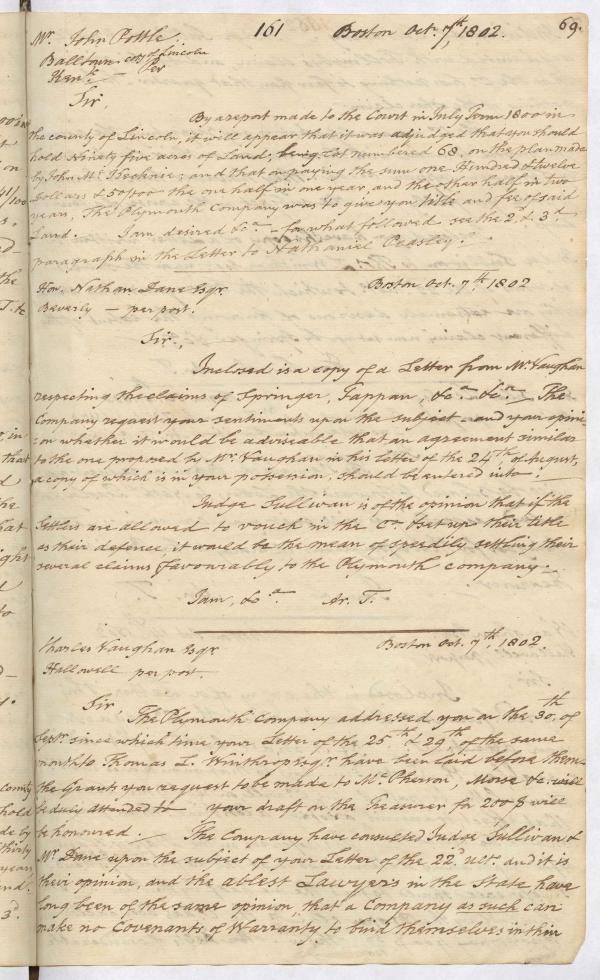 161 Boston Oct. 7th, 1802. 69.
Mr. John Pottle
Balltown - coy of Lincoln
Kenk. - Per
Sir,
By a report made to the Court in July Term 1800 in
the county of Lincoln, it will appear that it was adjudged that you should
hold Ninety five acres of Land, being Lot numbered 68, on the plan made
by John Mc. Kechnie; and that on paying the sum one Hundred & twelve
Dollars & 50/100 the one half in one year, and the other half in two
years, The Plymouth Company was to give you title and fee of said
Land. I am desired &ca. - for what followed see the 2, & 3d.
paragraph in the Letter to Nathaniel Peasley.
Hon. Nathan Dane Esqr. Boston Oct. 7th. 1802
Beverly - per post.
Sir,
Inclosed is a copy of a Letter from Mr. Vaughan
respecting the claims of Springer, Tappan, &ca. &ca. - The
Company request your sentiments upon the subject - and your opini-
-on whether it would be adviseable that an agreement similar
to the one proposed by Mr. Vaughan in his letter of the 24th of August,
a copy of which is in your possession, should be entered into.
Judge Sullivan is of the opinion that if the
Settlers are allowed to vouch in the Co. & set up their title
as their defence, it would be the mean of speedily settling their
several claims favourably to the Plymouth company.
I am, &ca. Ar. T.
Charles Vaughan Esqr Boston Oct. 7th, 1802.
Hallowell per post.
Sir, The Plymouth company addressed you on the 30th. of
Septr. since which time your Letter of the 25th & 29th, of the same
month to Thomas L. Winthrop Esqr. have been laid before them -
the Grants you request to be made to Mc. Pherson, Morse &c. will
be duly attended to your draft on the Treasurer for 200 $ will
be honoured. - The Company have consulted Judge Sullivan &
Mr. Dane upon the subject of your Letter of the 22d. ult. and it is
their opinion, and the ablest Lawyers in the State have
long been of the same opinion, that a Company as such can
make no Covenants of Warranty to bind themselves within